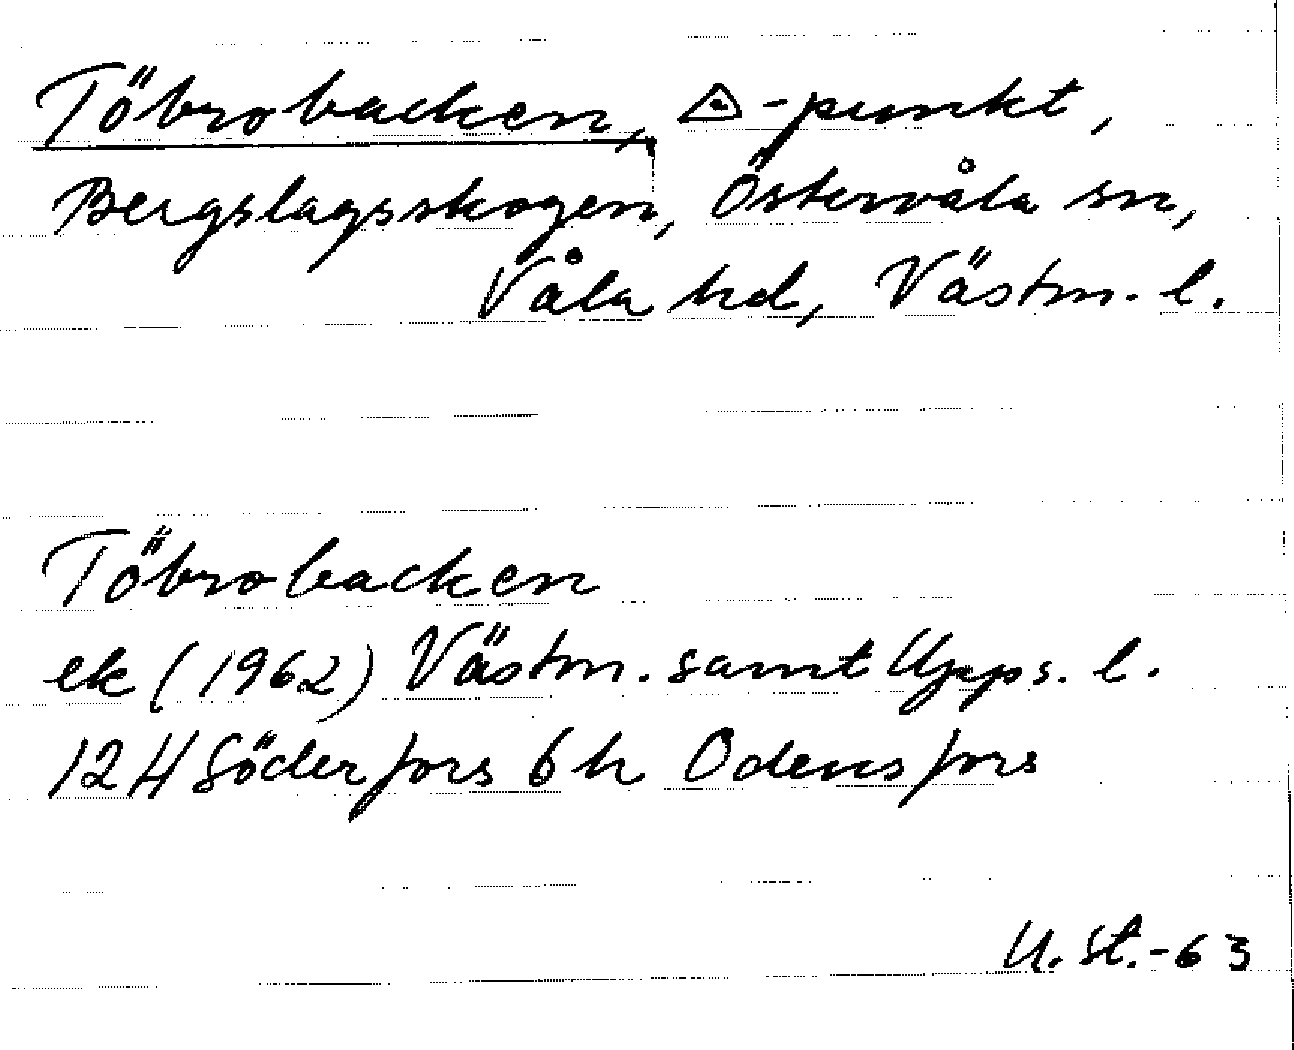 Töbrobacken, △-punkt,
Bergslagsskogen, Östervåla sn,
Våla hd, Västm. l.
Töbrobacken
ek (1962) Västm. samt Upps. l.
12H Söderfors 6h Odensfors
U. St.-63